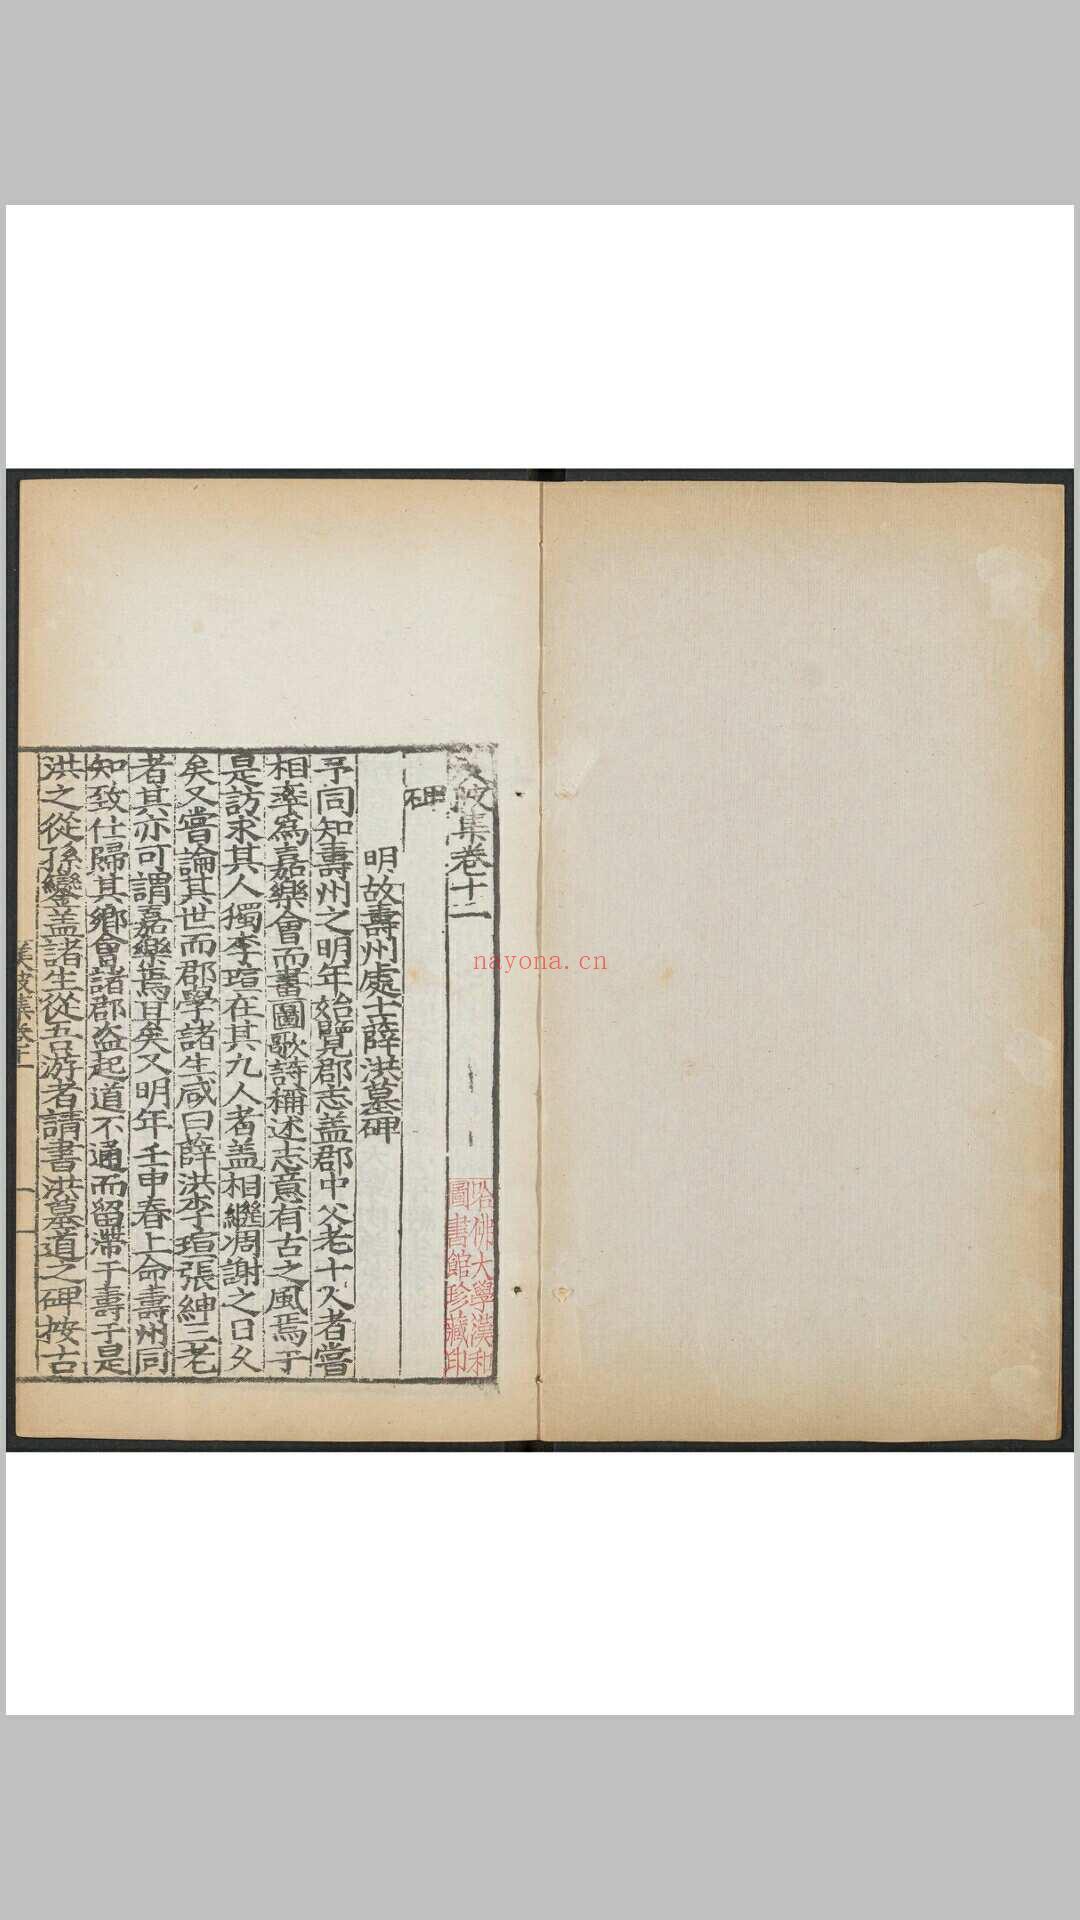 陂集卷十二
碑
明故壽州處士薛洪墓碑
予同知壽州之明年始覽郡志蓋郡中父老十人者嘗
相率爲嘉樂會而畫圖歌詩稱述志意有古之風焉于
是訪求其人獨李瑄在其九人者蓋相繼凋謝之日久
矣又嘗論其世而郡學諸生咸曰薛洪李瑄張紳三老
者其亦可謂嘉樂焉耳矣又明年壬申春上命壽州同
知致仕歸其鄉會諸郡盜起道不通而留滯于壽于是
洪之從孫鑾蓋諸生從吾游者請書洪墓道之碑按古
渼陂集卷十二
一
哈佛大學漢和
圖書館珍藏印
nayona.cn